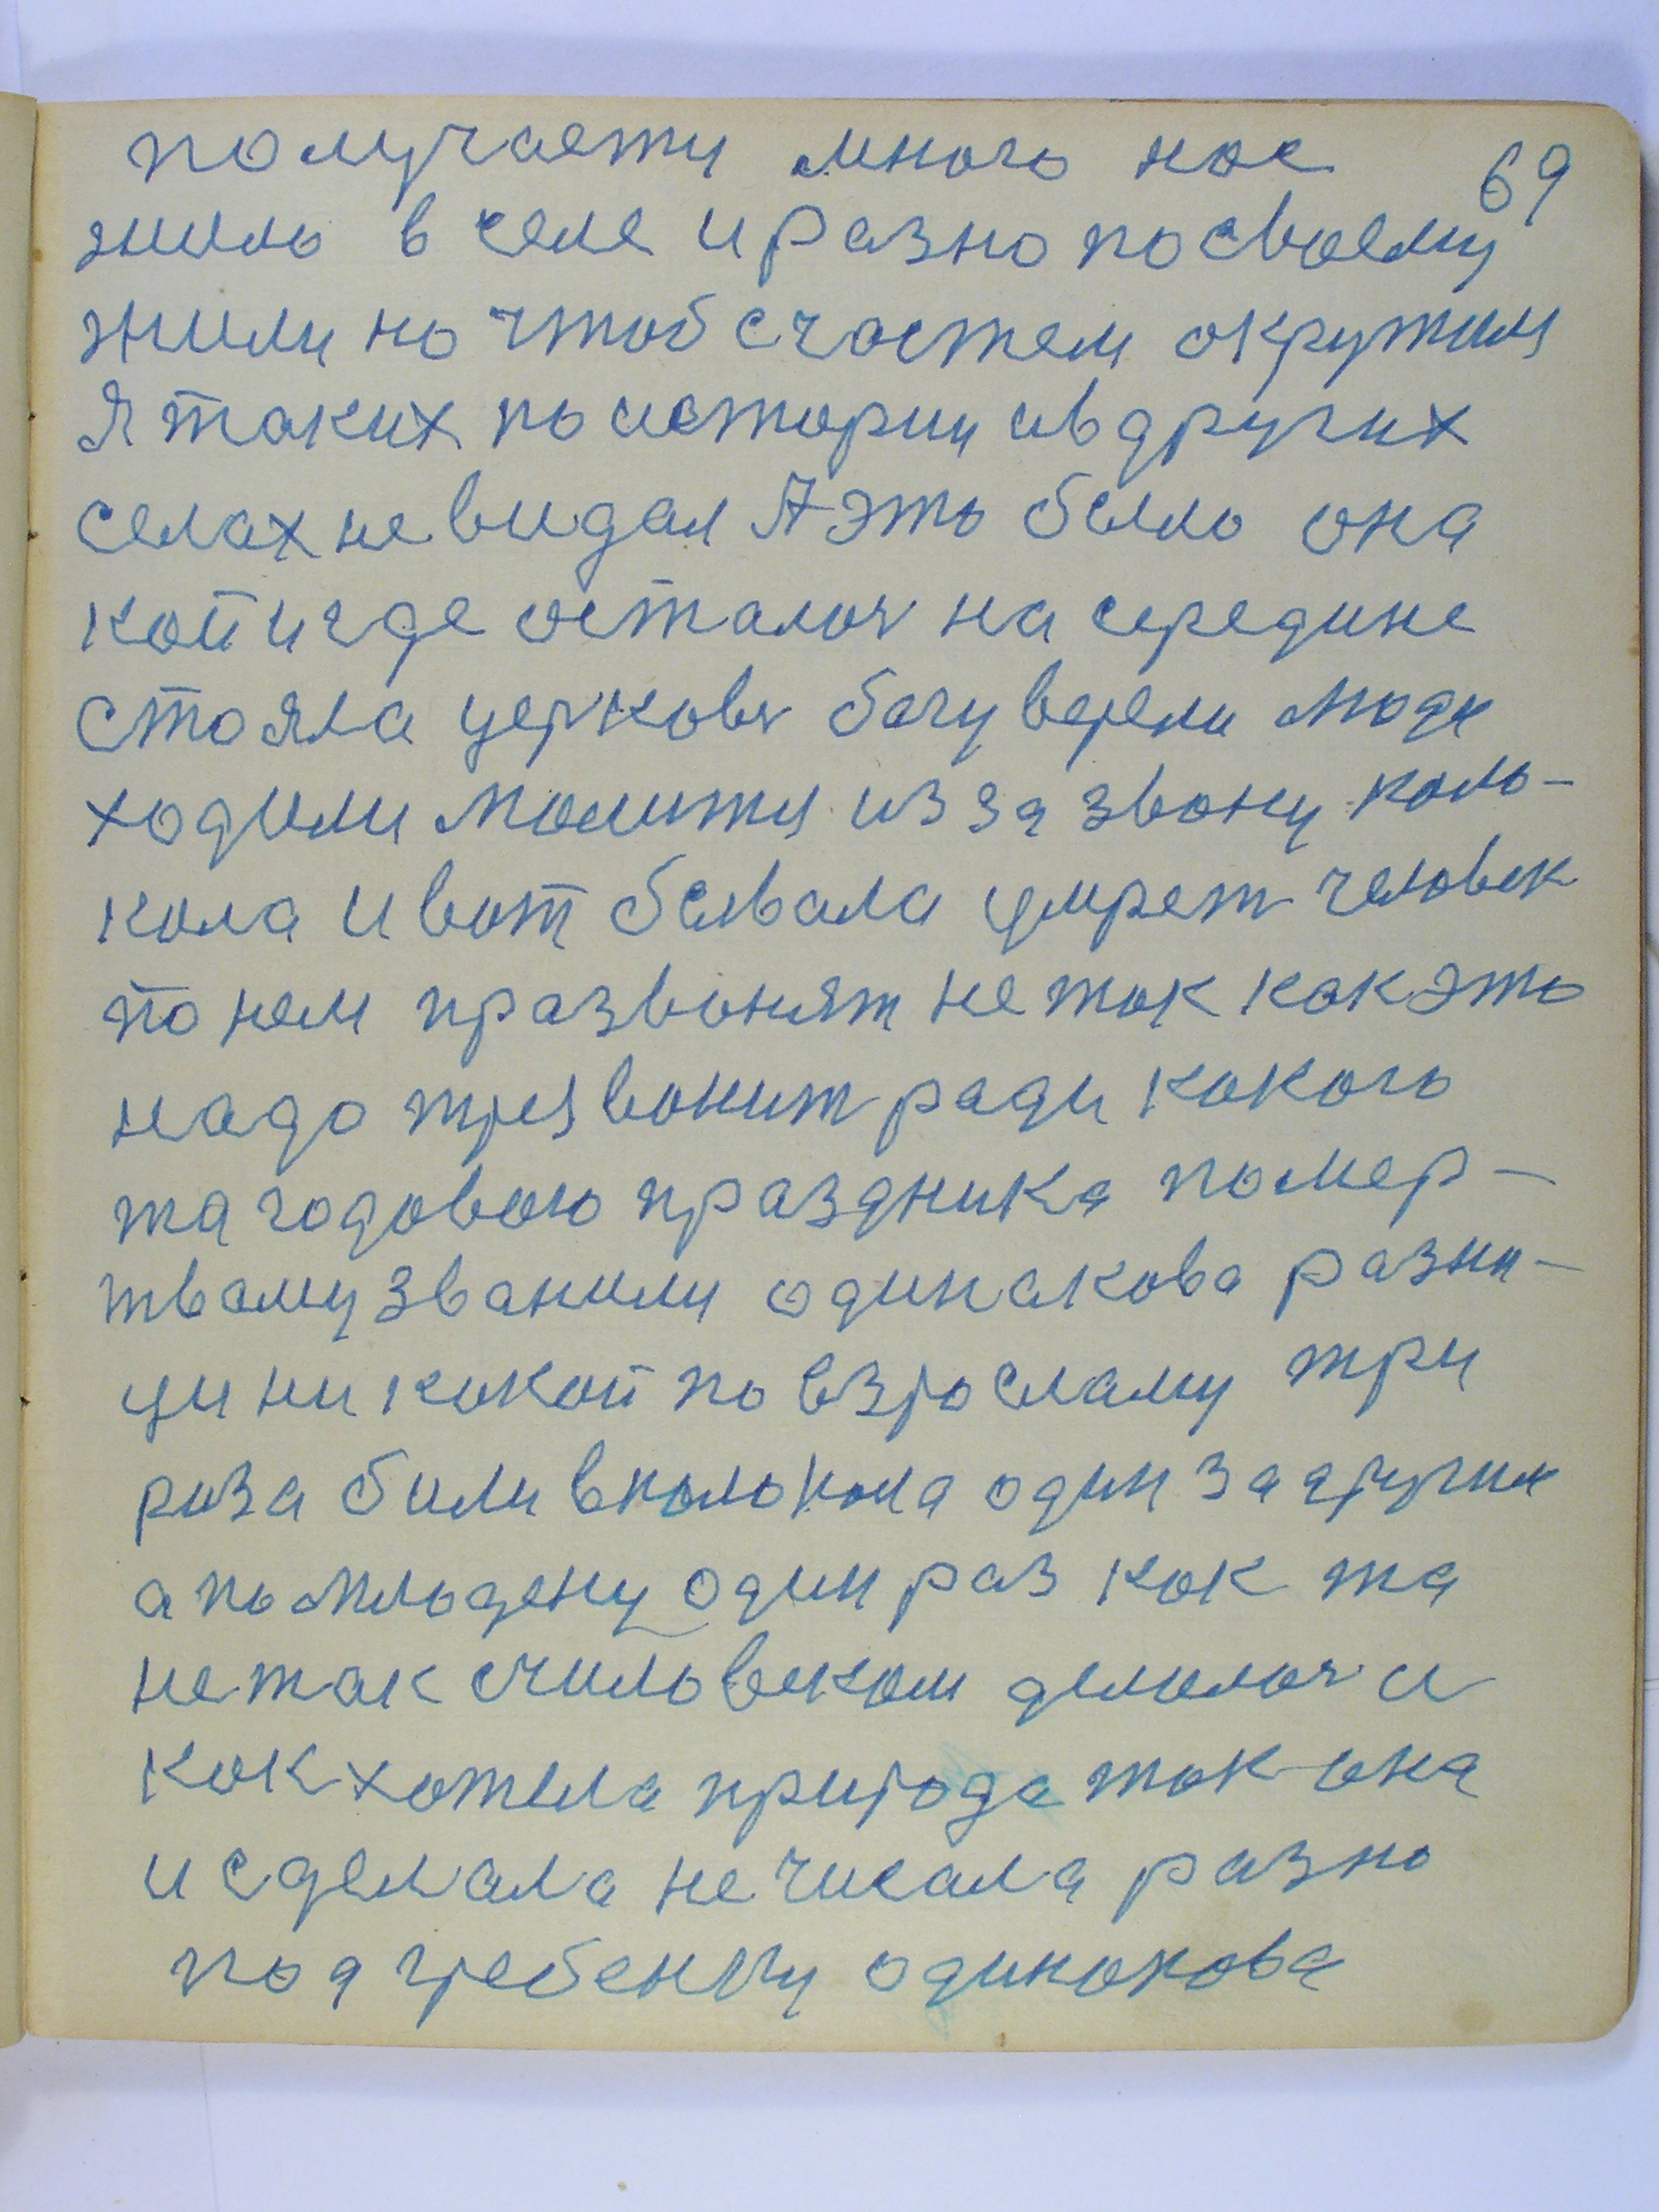 получаети много нас 69
жило в селе и разно посвоему
жили но чтоб счастем окружил
я таких по истории ивдругих
селах не видал А это было она
кой и где осталоя на середине
стояла церковь богу верели люди
ходили молитя из за звону коло-
кола и вот бывала умрет человек
по нем празвонят не так как это
надо трезвонит ради какого
та годовою праздника помер-
твому званили одинакова разни-
цы ни какой по взросламу три
раза били вколокола один за другим
а по младену один раз как та
не так счиловеком делолоя и
как хотела природа так она
и сделала не чисала разно
под гребенку одинакова